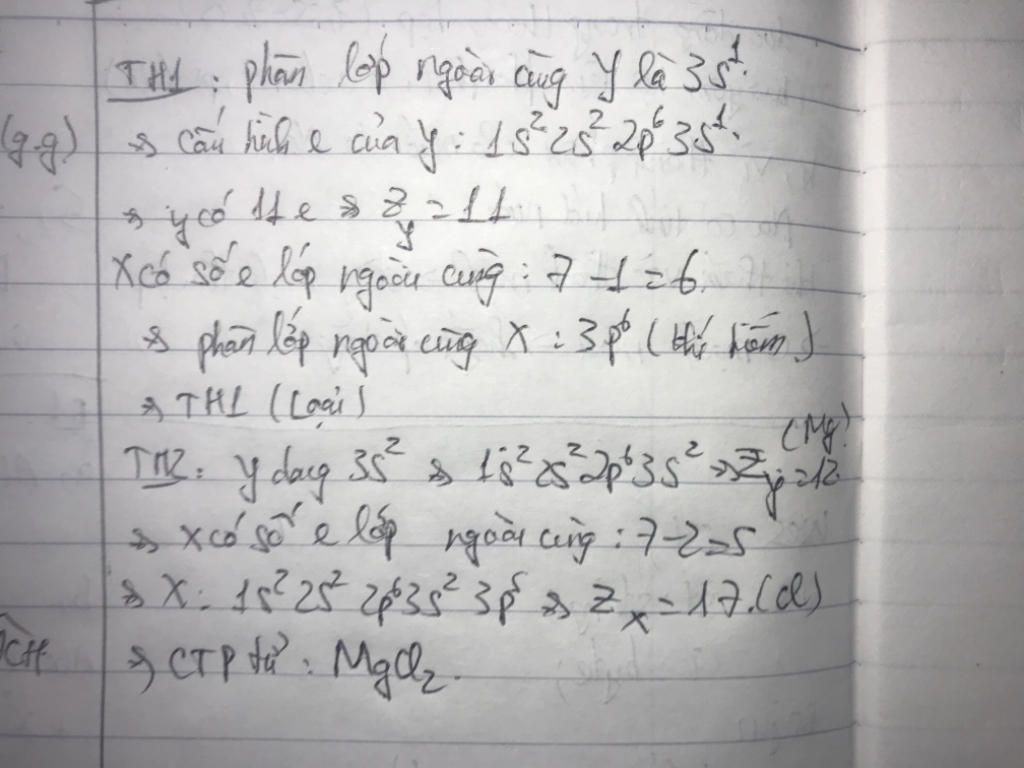 TH1: phân lớp ngoài cùng Y là 3s¹.
(g.g)
=> cấu hình e của Y: 1s² 2s² 2p⁶ 3s¹.
=> Y có 11 e => Z_Y = 11
X có số e lớp ngoài cùng: 7 - 1 = 6.
=> phân lớp ngoài cùng X: 3p⁶ (khí hiếm)
=> TH1 (Loại)
TH2: Y dạng 3s² => 1s² 2s² 2p⁶ 3s² => Z_Y = 12 (Mg)
=> X có số e lớp ngoài cùng: 7 - 2 = 5
=> X: 1s² 2s² 2p⁶ 3s² 3p⁵ => Z_X = 17. (Cl)
=> CTP tử: MgCl₂.